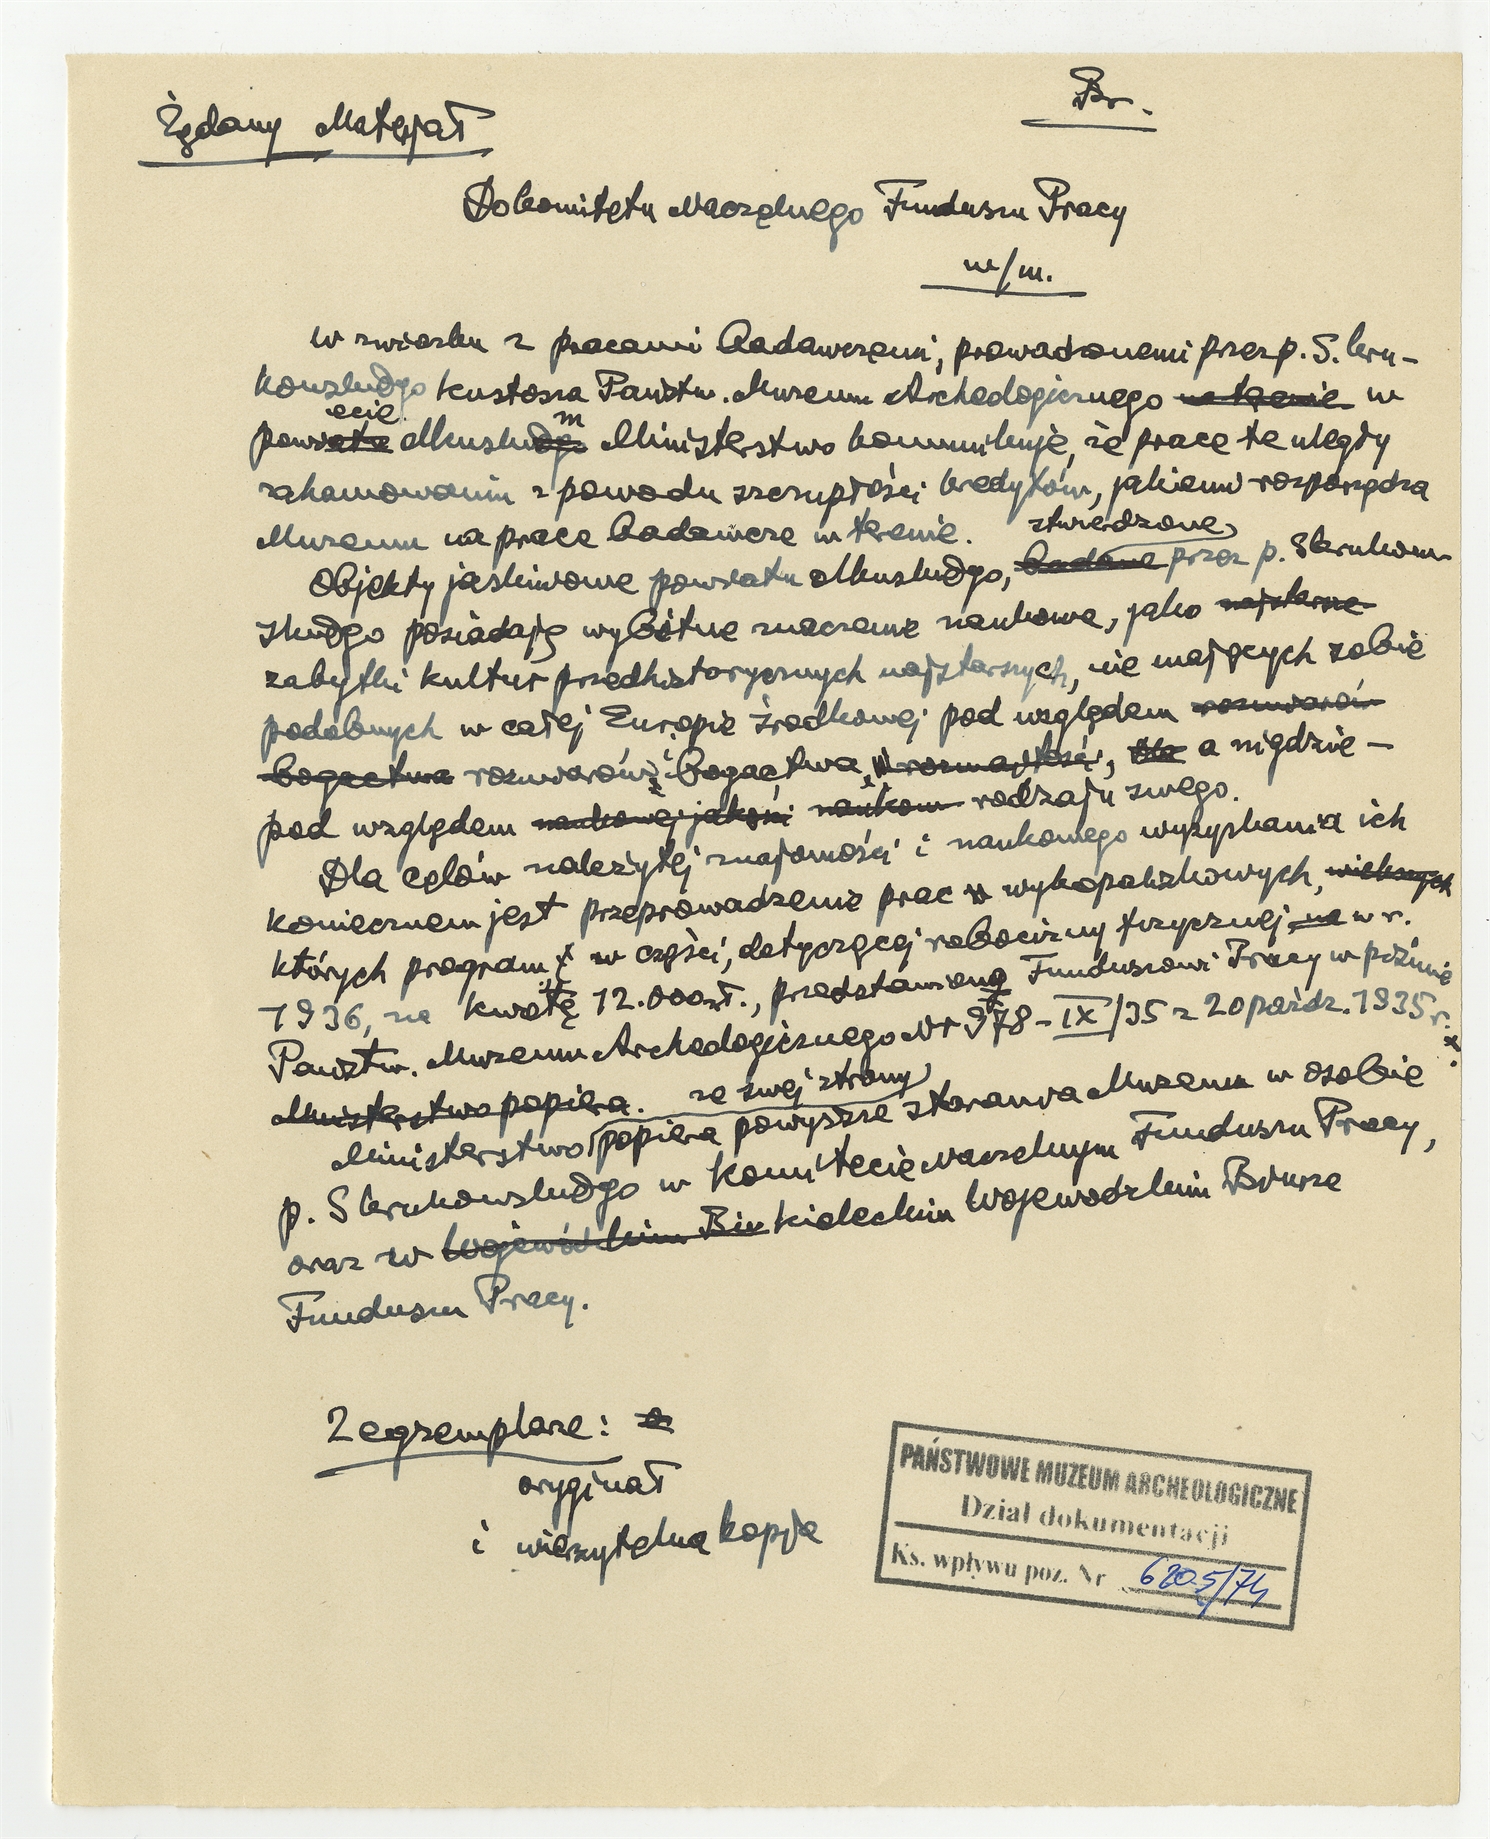 Żądany Materjał
Br.
Do Komitetu Naczelnego Funduszu Pracy
w/m.
W związku z pracami badawczemi, prowadzonemi przez p. S. Kru-
kowskiego kustosza Państw. Muzeum Archeologicznego na terenie w
ecie m
powiata Olkuskiego Ministerstwo komunikuje, że prace te uległy
zahamowaniu z powodu szczupłości kredytów, jakiemi rozporządza
Muzeum na prace badawcze w terenie.
stwierdzone
Objekty jaskiniowe powiatu Olkuskiego, badane przez p. S. Krukow-
skiego posiadają wybitne znaczenie naukowe, jako najstarsze
zabytki kultur przedhistorycznych najstarszych, nie mających sobie
podobnych w całej Europie Środkowej pod względem rozmiarów
bogactwa rozmiarów i bogactwa, i rozmaitości, a nigdzie –
pod względem naukowej jakości naukow rodzaju swego.
Dla celów należytej znajomości i naukowego wyzyskania ich
koniecznem jest przeprowadzenie prac wykopaliskowych, większych
których program w części, dotyczącej robocizny fizycznej na w r.
1936, na kwotę 12.000 zł., przedstawiono Funduszowi Pracy w piśmie
Państw. Muzeum Archeologicznego Nr 978-IX/35 z 20 paźdz. 1935 r.
Ministerstwo popiera.
ze swej strony
Ministerstwo popiera powyższe starania Muzeum w osobie
p. S. Krukowskiego w Komitecie Naczelnym Funduszu Pracy,
oraz w Wojewódzkim Biu Kieleckim Wojewódzkim Biurze
Funduszu Pracy.
2 egzemplarze:
oryginał
i wierzytelna kopja
PAŃSTWOWE MUZEUM ARCHEOLOGICZNE
Dział dokumentacji
Ks. wpływu poz. Nr 6205/74